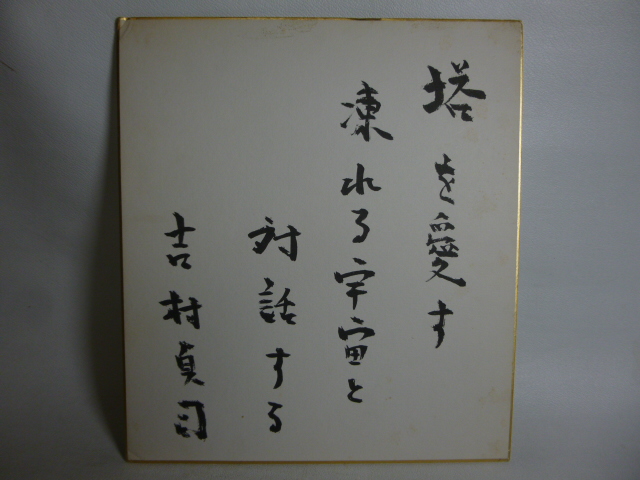 塔を愛す
凍れる宇宙と
対話する
吉村貞司